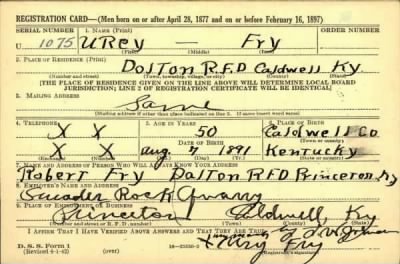 REGISTRATION CARD—(Men born on or after April 28, 1877 and on or before February 16, 1897)
SERIAL NUMBER 1. NAME (Print) ORDER NUMBER
U 1075 URey — Fry
(First) (Middle) (Last)
2. PLACE OF RESIDENCE (Print)
Dalton R.F.D Caldwell Ky
(Number and street) (Town, township, village, or city) (County) (State)
[THE PLACE OF RESIDENCE GIVEN ON THE LINE ABOVE WILL DETERMINE LOCAL BOARD
JURISDICTION; LINE 2 OF REGISTRATION CERTIFICATE WILL BE IDENTICAL]
3. MAILING ADDRESS
Same
[Mailing address if other than place indicated on line 2. If same insert word same]
4. TELEPHONE 5. AGE IN YEARS 6. PLACE OF BIRTH
X X 50 Caldwell Co
DATE OF BIRTH (Town or county)
X X Aug 1891 Kentucky
(Exchange) (Number) (Mo.) (Day) (Yr.) (State or country)
7. NAME AND ADDRESS OF PERSON WHO WILL ALWAYS KNOW YOUR ADDRESS
Robert Fry Dalton RFD Princeton, Ky
8. EMPLOYER'S NAME AND ADDRESS
Rock Quarry
9. PLACE OF EMPLOYMENT OR BUSINESS
Princeton Caldwell, Ky
(Number and street or R. F. D. number) (Town) (County) (State)
I AFFIRM THAT I HAVE VERIFIED ABOVE ANSWERS AND THAT THEY ARE TRUE.
D. S. S. Form 1
(Revised 4-1-42) (over)
Fry